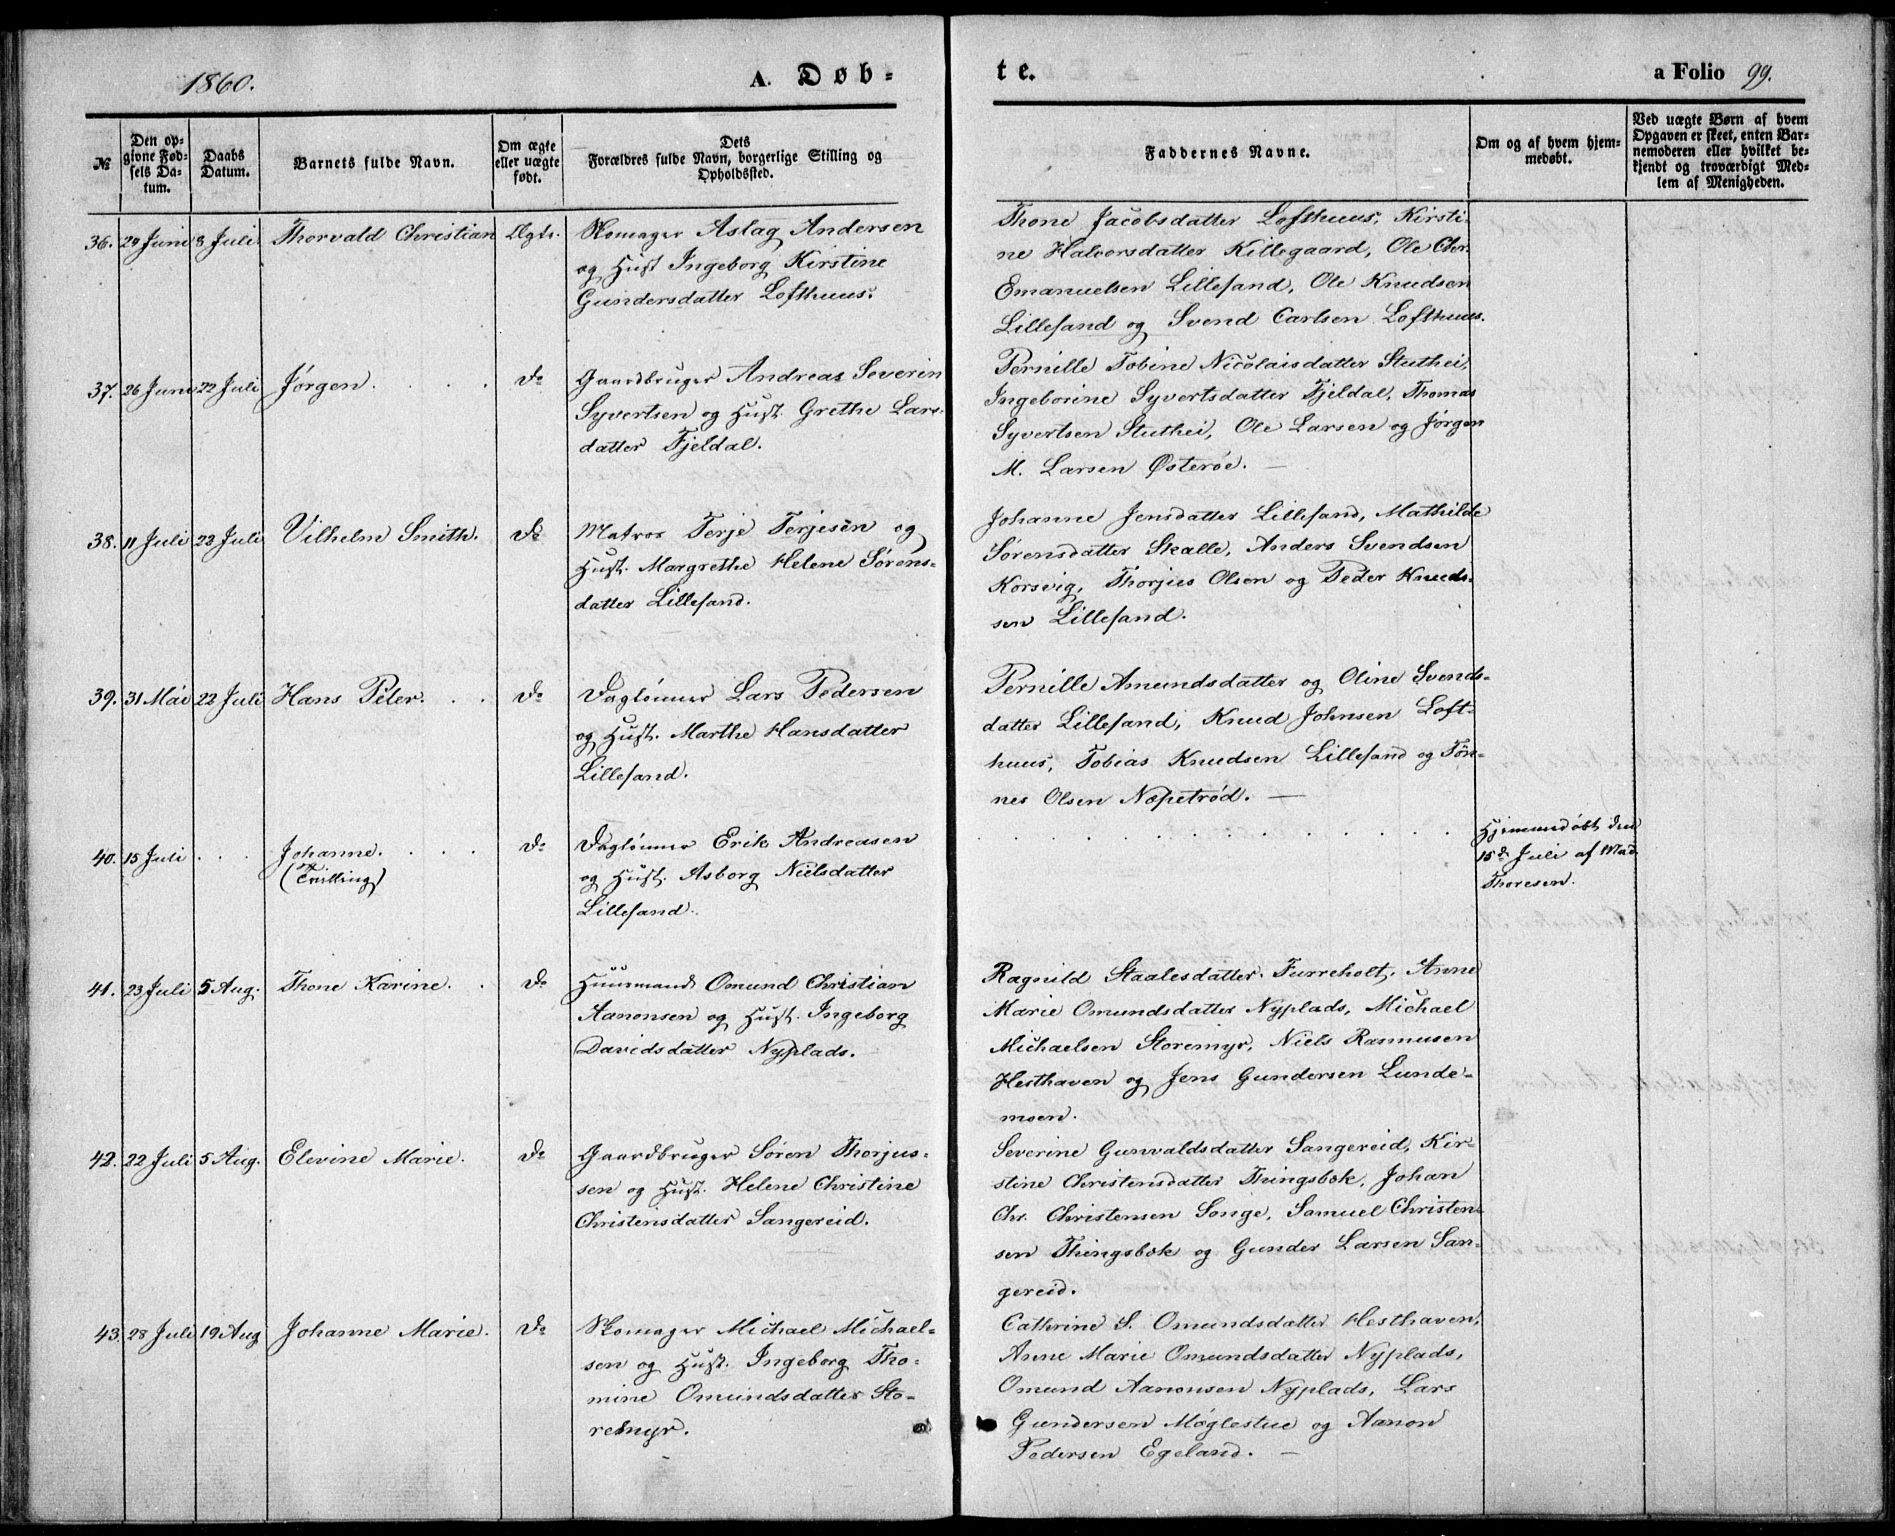 1860.
A. Døb-
te.
a Folio 99.
№
Den op-
givne Fød-
sels Da-
tum.
Daabs
Datum.
Barnets fulde Navn.
Om ægte
eller uægte
født.
Dets
Forældres fulde Navn, borgerlige Stilling og
Opholdssted.
Faddernes Navne.
Om og af hvem hjem-
medøbt.
Ved uægte Børn af hvem
Opgaven er skeet, enten Bar-
nemoderen eller hvilket be-
kjendt og troværdigt Med-
lem af Menigheden.
36. 24 Juni 8 Juli Thorvald Christian Ægte. Skomager Aslag Andersen
og Hust Ingeborg Kirstine
Gundersdatter Lofthuus.
Thone Jacobsdatter Lofthuus, Kirsti-
ne Halvorsdatter Killegaard, Ole Chr.
Emanuelsen Lillesand, Ole Knudsen
Lillesand og Svend Carlsen Lofthuus.
37. 26 Juni 22 Juli Jørgen. Do Gaardbruger Andreas Severin
Syvertsen og Hust. Grethe Lars-
datter Fjeldal.
Pernille Tobine Nicolaisdatter Stuthei,
Ingeborine Syvertsdatter Fjeldal, Thomas
Syvertsen Stuthei, Ole Larsen og Jørgen
M. Larsen Østerøe. —
38. 11 Juli 22 Juli Vilhelm Smith. Do Matros Terje Terjesen og
Hust. Margrethe Helene Sørens-
datter Lillesand.
Johanne Jensdatter Lillesand, Mathilde
Sørensdatter Skalle, Anders Svendsen
Korsvig, Thorjus Olsen og Peder Knud-
sen Lillesand.
39. 31 Mai 22 Juli Hans Peter. Do Daglønner Lars Pedersen
og Hust. Marthe Hansdatter
Lillesand.
Pernille Amundsdatter og Oline Svends-
datter Lillesand, Knud Johnsen Loft-
huus, Tobias Knudsen Lillesand og Tøn-
nes Olsen Næpetrød. —
40. 15 Juli . . . Johanne. Do Daglønner Erik Andreasen
(Tvilling)
og Hust. Asborg Nielsdatter
Lillesand.
Hjemmedøbt den
15d Juli af Mad.
Thoresen.
41. 23 Juli 5 Aug. Thone Karine. Do Huusmand Omund Christian
Aanonsen og Hust. Ingeborg
Davidsdatter Nyplads.
Ragnild Staalesdatter Furreholt, Anne
Marie Omundsdatter Nyplads, Michael
Michaelsen Storemyr, Niels Rasmusen
Hesthaven og Jens Gundersen Lunde-
moen.
42. 22 Juli 5 Aug. Elevine Marie. Do Gaardbruger Søren Thorjus-
sen og Hust. Helene Christine
Christensdatter Sangereid.
Severine Gunvaldsdatter Sangereid, Kir-
stine Christensdatter Thingsbok, Johan
Chr. Christensen Songe, Samuel Christen-
sen Thingsbok og Gunder Larsen San-
gereid.
43. 28 Juli 19 Aug Johanne Marie. Do Skomager Michael Michael-
sen og Hust. Ingeborg Tho-
mine Omundsdatter Sto-
remyr.
Cathrine S. Omundsdatter Hesthaven,
Anne Marie Omundsdatter Nyplads,
Omund Aanonsen Nyplads, Lars
Gundersen Møglestue og Aanon
Pedersen Egeland. —